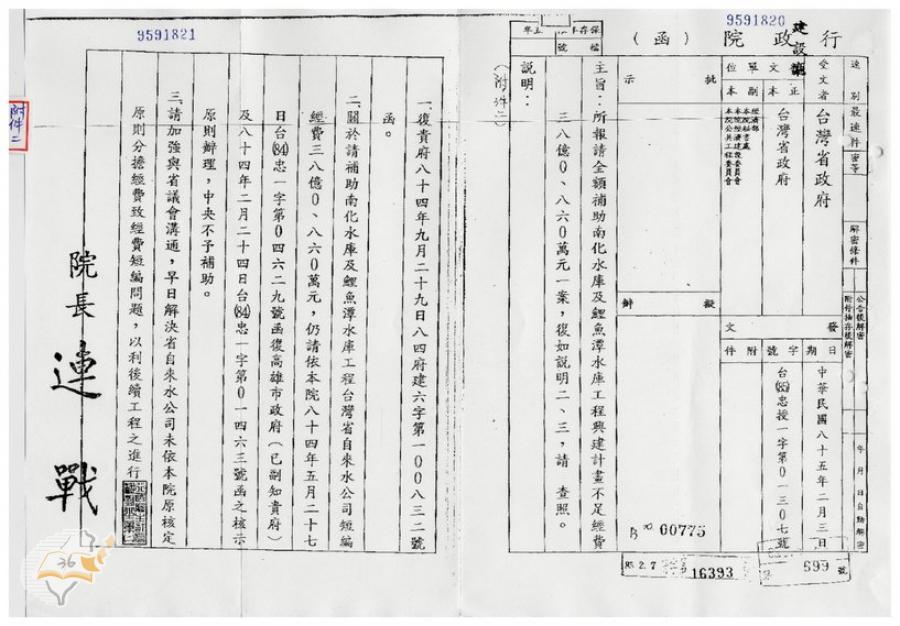 9591820
建設廳
行政院（函）
保存年限
檔號
速別
最速件
密等
解密條件
公布後解密
附件抽存後解密
年月日自動解密
受文者
台灣省政府
行文單位
正本
台灣省政府
副本
經濟部
本院秘書處
本院經濟建設委員會
本院公共工程委員會
發文
日期
中華民國八十五年二月三日
字號
台(85)忠授一字第0一三0七號
附件
批示
擬辦
主旨：所報請全額補助南化水庫及鯉魚潭水庫工程興建計畫不足經費
三八億0、八六0萬元一案，復如說明二、三，請 查照。
說明：
（附件二）
00775
85.2.7
16393
699 號
9591821
附件二
一、復貴府八十四年九月二十九日八四府建六字第一00八三二號
函。
二、關於請補助南化水庫及鯉魚潭水庫工程台灣省自來水公司短編
經費三八億0、八六0萬元，仍請依本院八十四年五月二十七
日台(84)忠一字第0四六二九號函復高雄市政府（已副知貴府）
及八十四年二月二十四日台(84)忠一字第0一四六三號函之核示
原則辦理，中央不予補助。
三、請加強與省議會溝通，早日解決省自來水公司未依本院原核定
原則分擔經費致經費短編問題，以利後續工程之進行
院長 連戰
36